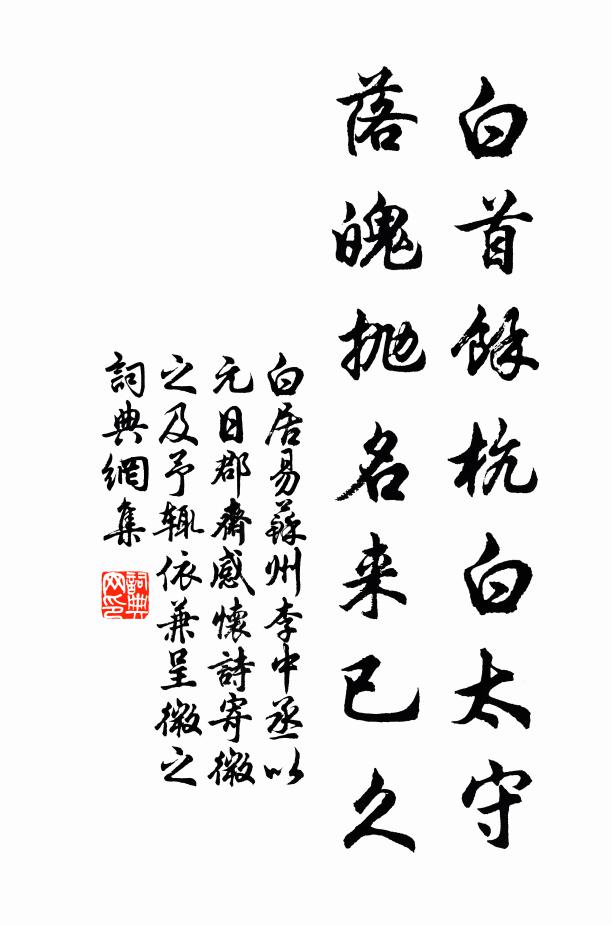 白首餘杭白太守
落魄抛名来已久
白居易蘇州李中丞以
元日郡齋感懷詩寄微
之及予輒依兼呈微之
詞典網集
詞典
网印